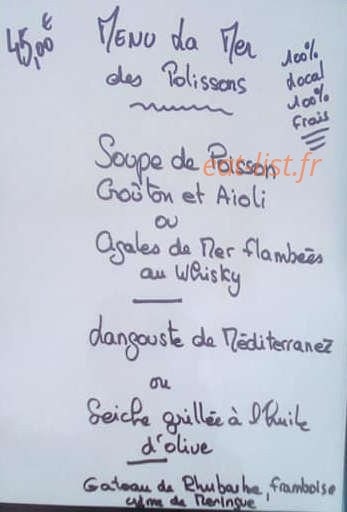 45,00€
MENU La Mer
des Polissons
100%
Local
100%
frais
Soupe de Poisson
eat-list.fr
Croûton et Aioli
ou
Cigales de Mer flambées
au Whisky
Langouste de Méditerranez
ou
Seiche grillée à l'huile
d'olive
Gateau de Rhubarbe, framboise
crème de Meringue